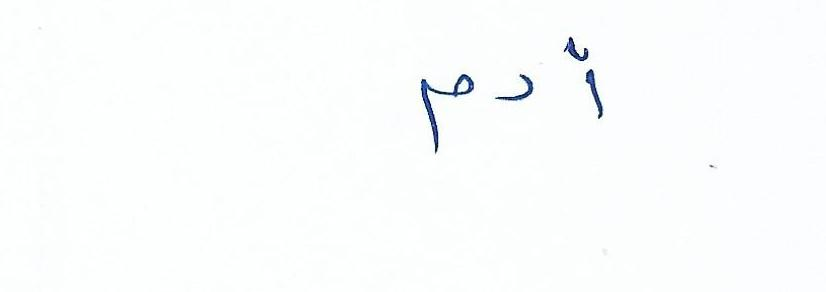 أدم